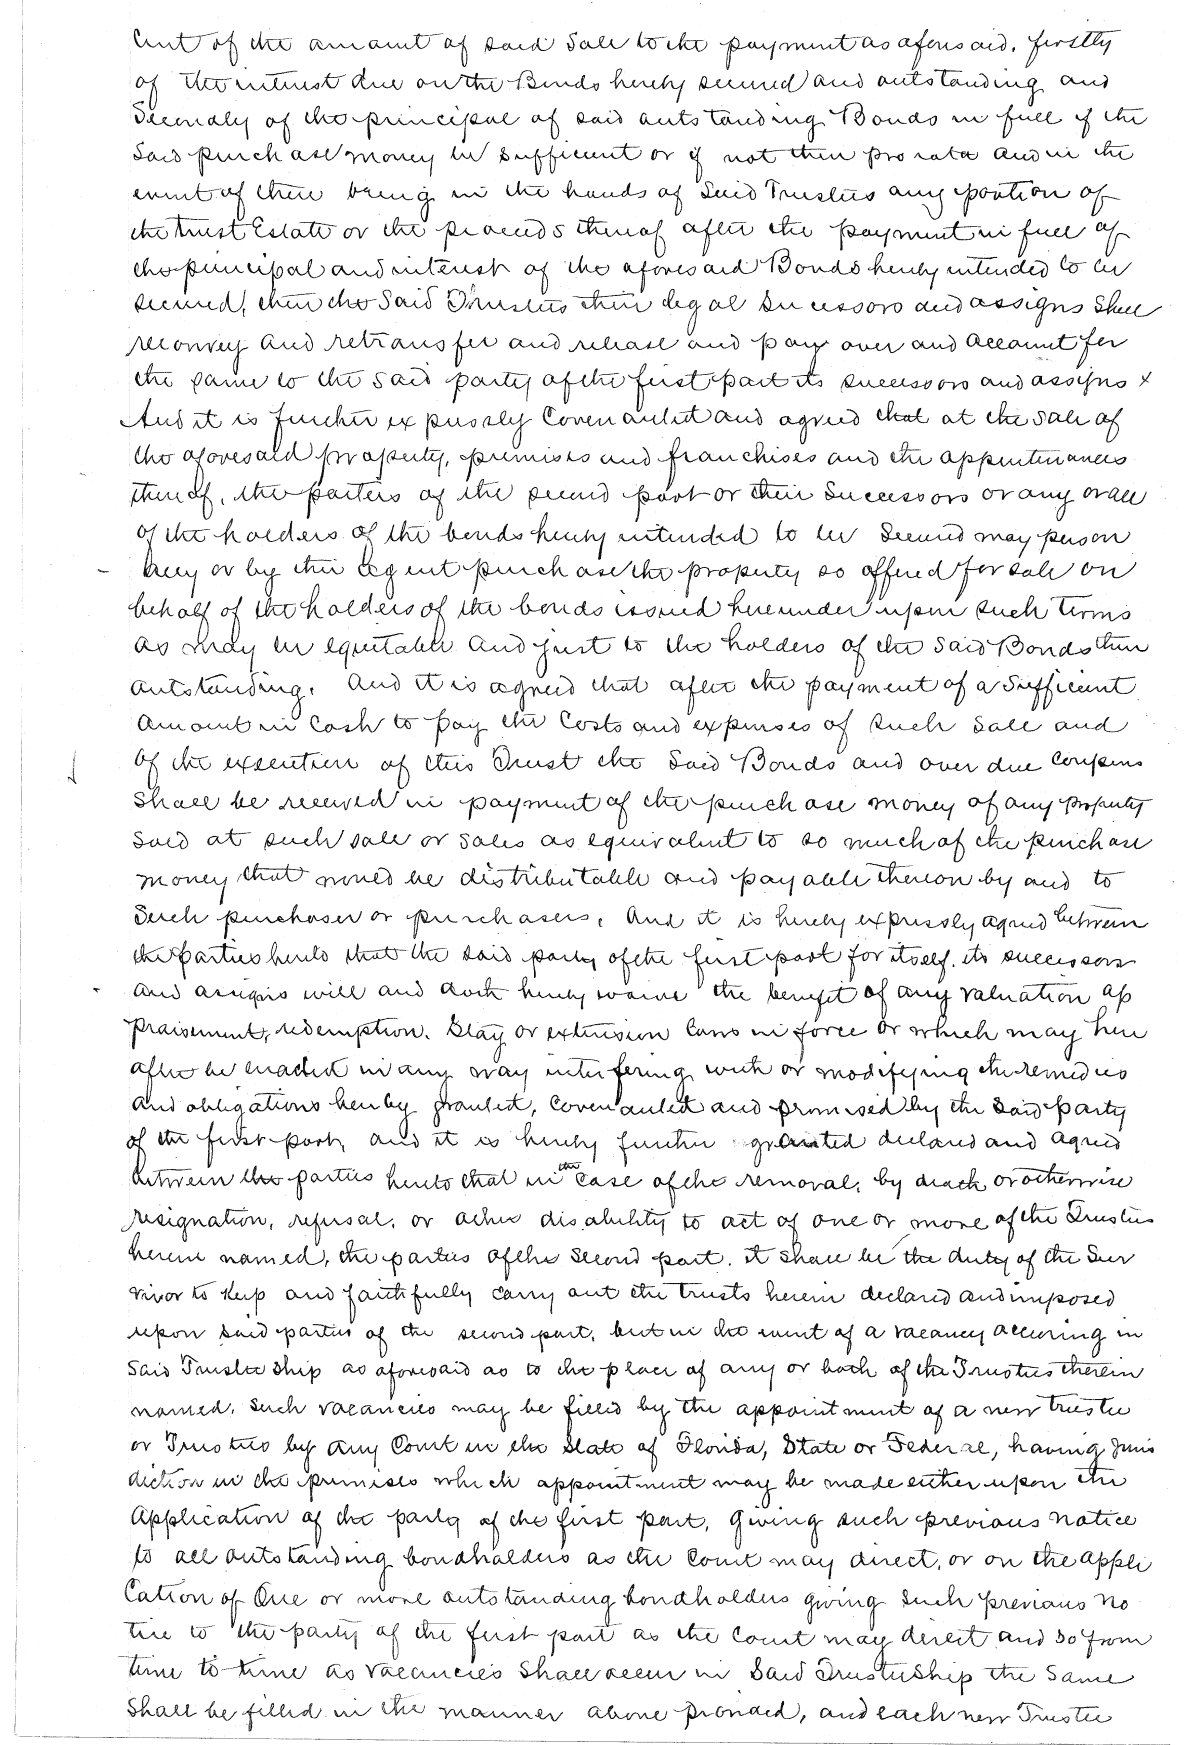 cent of the amount of said sale to the payment as aforesaid, firstly
of the interest due on the Bonds hereby secured and outstanding and
Secondly of the principal of said outstanding Bonds in full if the
said purchase money be sufficient or if not then pro rata and in the
event of there being in the hands of said Trustees any portion of
the trust Estate or the proceeds thereof after the payment in full of
the principal and interest of the aforesaid Bonds hereby intended to be
secured, then the said Trustees their legal successors and assigns shall
reconvey and retransfer and release and pay over and account for
the same to the said party of the first part its successors and assigns x
And it is further expressly Covenanted and agreed that at the sale of
the aforesaid property, premises and franchises and the appurtenances
thereof, the parties of the second part or their Successors or any or all
of the holders of the bonds hereby intended to be Secured may person
ally or by their agent purchase the property so offered for sale on
behalf of the holders of the bonds issued hereunder upon such terms
as may be equitable and just to the holders of the said Bonds then
outstanding. And it is agreed that after the payment of a Sufficient
amount in Cash to pay the Costs and expenses of such sale and
of the execution of this Trust the said Bonds and over due Coupons
shall be received in payment of the purchase money of any property
sold at such sale or sales as equivalent to so much of the purchase
money that would be distributable and payable thereon by and to
Such purchaser or purchasers. And it is hereby expressly agreed between
the parties hereto that the said party of the first part for itself, its successors
and assigns will and doth hereby waive the benefit of any valuation ap
praisement, redemption. Stay or extension laws in force or which may here
after be enacted in any way interfering with or modifying the remedies
and obligations hereby granted, Covenanted and promised by the said party
of the first part, and it is hereby further granted declared and agreed
between the parties hereto that in the case of the removal, by death or otherwise
resignation, refusal, or other disability to act of one or more of the Trustees
herein named, the parties of the Second part. it shall be the duty of the Sur
vivor to keep and faithfully carry out the trusts herein declared and imposed
upon said parties of the second part, but in the event of a vacancy occuring in
said Trusteeship as aforesaid as to the place of any or both of the Trustees therein
named, such vacancies may be filled by the appointment of a new trustee
or Trustees by any Court in the State of Florida, State or Federal, having juris
diction in the premises which appointment may be made either upon the
Application of the party of the first part, giving such previous notice
to all outstanding bondholders as the Court may direct, or on the appli
cation of One or more outstanding bondholders giving such previous no
tice to the party of the first part as the Court may direct and so from
time to time as vacancies shall occur in said Trusteeship the same
shall be filled in the manner above provided, and each new Trustee